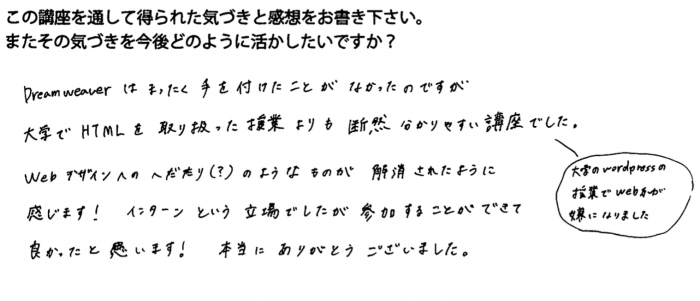 この講座を通して得られた気づきと感想をお書き下さい。
またその気づきを今後どのように活かしたいですか？
Dreamweaver はまったく手を付けたことがなかったのですが
大学でHTMLを取り扱った授業よりも断然分かりやすい講座でした。
Webデザインへのへだたり(?)のようなものが解消されたように
感じます! インターンという立場でしたが参加することができて
良かったと思います! 本当にありがとうございました。
大学のwordpressの
授業でwebが
嫌になりました